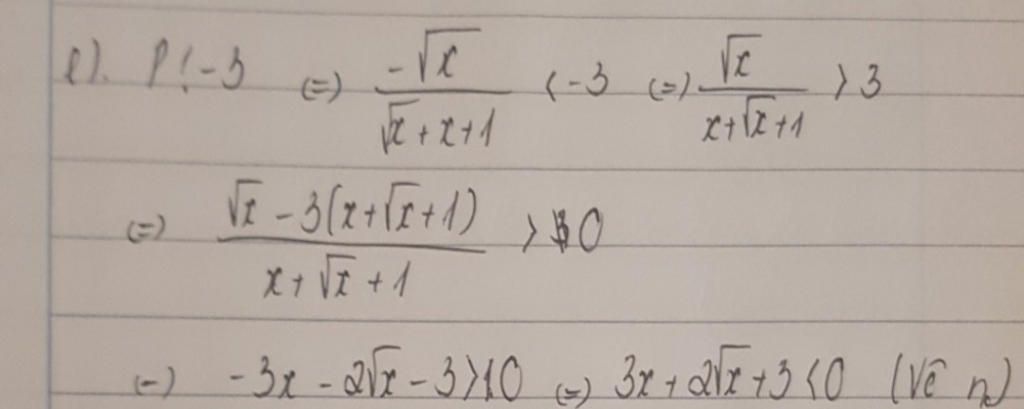 e). P < -3 (=) -√x / (√x + x + 1) < -3 (=) √x / (x + √x + 1) > 3
(=) (√x - 3(x + √x + 1)) / (x + √x + 1) > 0
(=) -3x - 2√x - 3 > 0 (=) 3x + 2√x + 3 < 0 (Vô n)